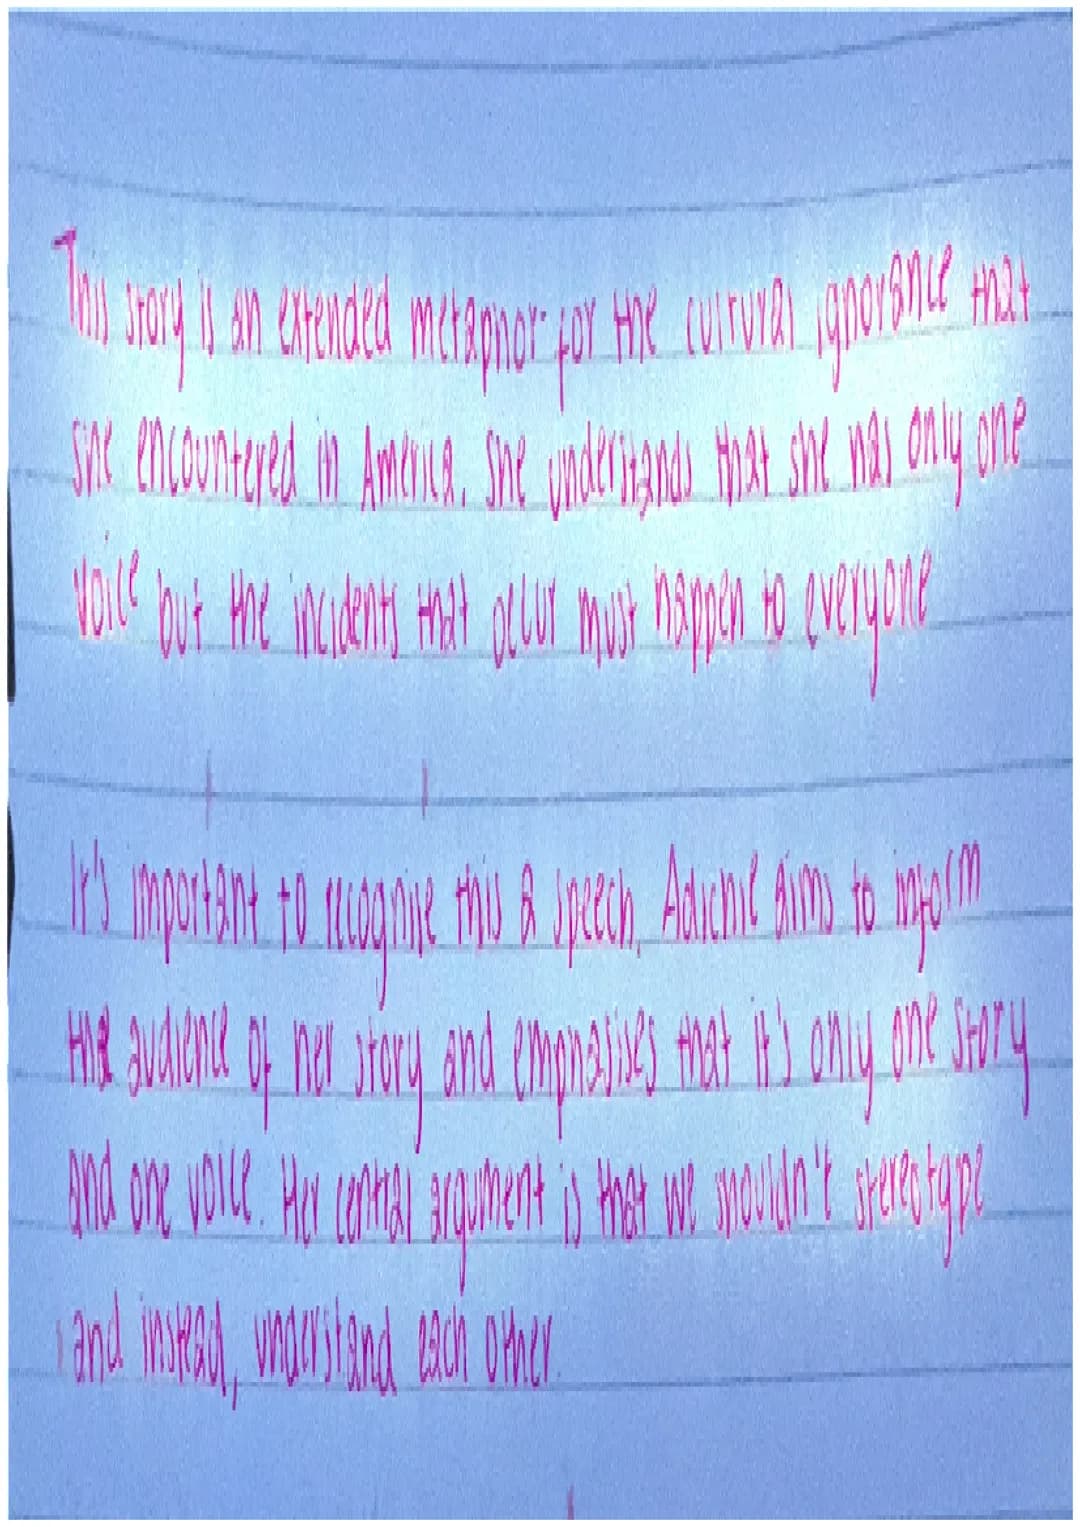 This story is an extended metaphor for the cultural ignorance that
she encountered in America. She understands that she has only one
voice but the incidents that occur must happen to everyone
It's important to recognise this a speech. Adichie aims to inform
the audience of her story and emphasises that it's only one story
and one voice. Her central argument is that we shouldn't stereotype
and instead, understand each other.